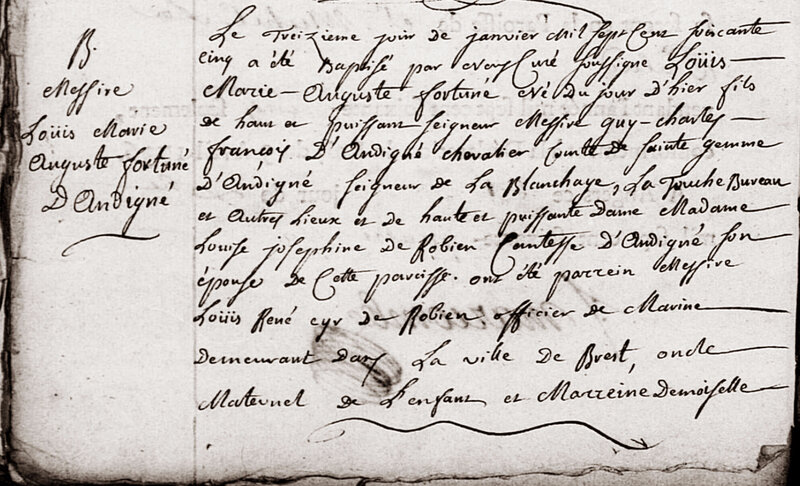 B.
Messire
Loüis Marie
Auguste fortuné
D'Andigné
Le Treizieme jour de janvier Mil Sept Cent soixante
cinq a été Baptisé par curé soussigné Loüis-
Marie-Auguste fortuné né du jour d'hier fils
de haut et puissant Seigneur Messire guy-charles-
francois D'Andigné chevalier Comte de Sainte gemme
D'Andigné Seigneur de La Blanchaye, La Touche Bureau
et Autres Lieux et de haute et puissante Dame Madame
Louise josephine de Robien Comtesse D'Andigné Son
épouse de Cette paroisse. ont été parrein Messire
Loüis René cyr de Robien officier de Marine
Demeurant dans La ville de Brest, oncle
Maternel de L'enfant et Marreine Demoiselle